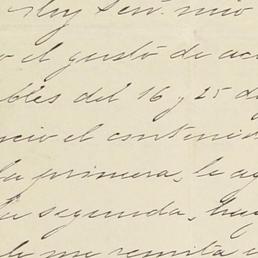 Muy Señ. mío
o el gusto de ac
bles del 16 y 25 d
ncio el contenid
la primera, le ag
la segunda, hag
le me remita